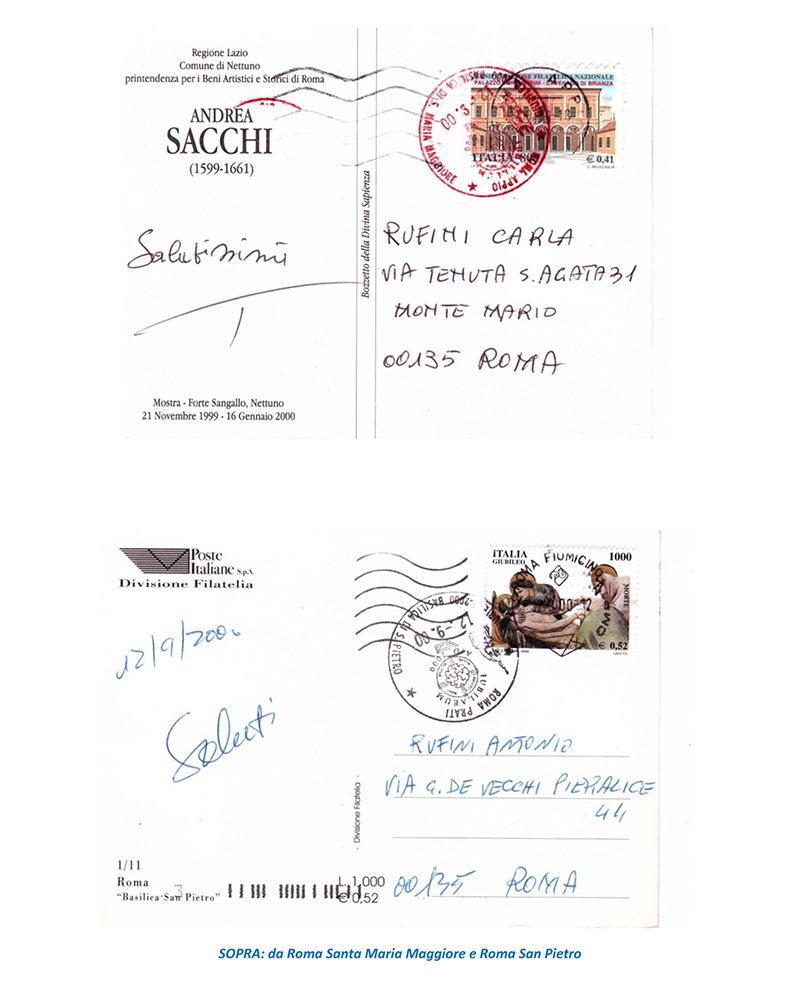 Regione Lazio
Comune di Nettuno
printendenza per i Beni Artistici e Storici di Roma
ANDREA
SACCHI
(1599-1661)
Salutissimi
Mostra - Forte Sangallo, Nettuno
21 Novembre 1999 - 16 Gennaio 2000
Bozzetto della Divina Sapienza
MANIFESTAZIONE FILATELICA NAZIONALE
ITALIA 800
€ 0,41
BASILICA DI S. MARIA MAGGIORE
ROMA APPIO
RUFINI CARLA
VIA TENUTA S. AGATA 31
MONTE MARIO
00135 ROMA
Poste
Italiane S.p.A.
Divisione Filatelia
12/9/2000
Saluti
1/11
Roma
"Basilica San Pietro"
- Divisione Filatelia -
L. 1.000
€ 0,52
ITALIA
GIUBILEO
1000
MORTE
€ 0,52
ROMA FIUMICINO
2000 BASILICA DI S. PIETRO
12-9-00
IUBILAEUM
ROMA PRATI
RUFINI ANTONIO
VIA G. DE VECCHI PIERALICE
44
00135 ROMA
SOPRA: da Roma Santa Maria Maggiore e Roma San Pietro